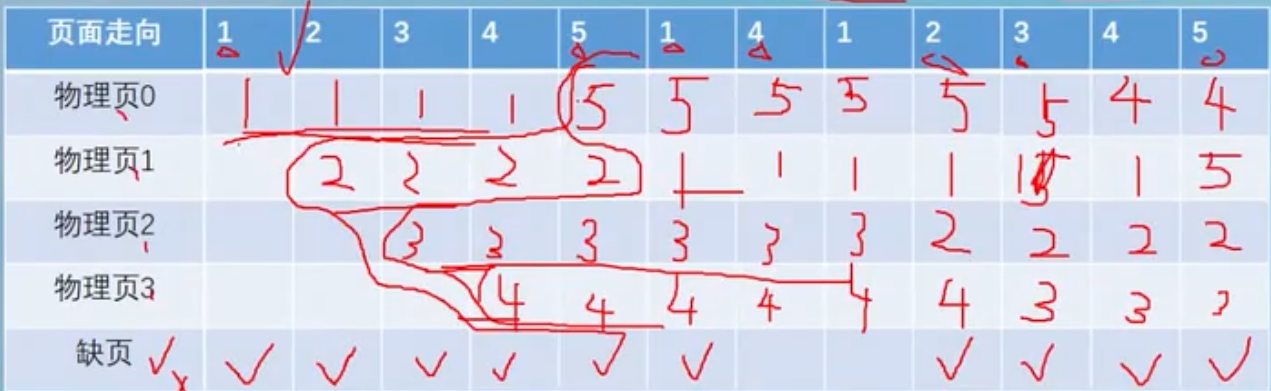 页面走向 1 2 3 4 5 1 4 1 2 3 4 5
物理页0 1 1 1 1 5 5 5 5 5 5 4 4
物理页1 2 2 2 2 1 1 1 1 1 1 5
物理页2 3 3 3 3 3 3 2 2 2 2
物理页3 4 4 4 4 4 4 3 3 3
缺页 ✓ ✓ ✓ ✓ ✓ ✓ ✓ ✓ ✓ ✓ ✓